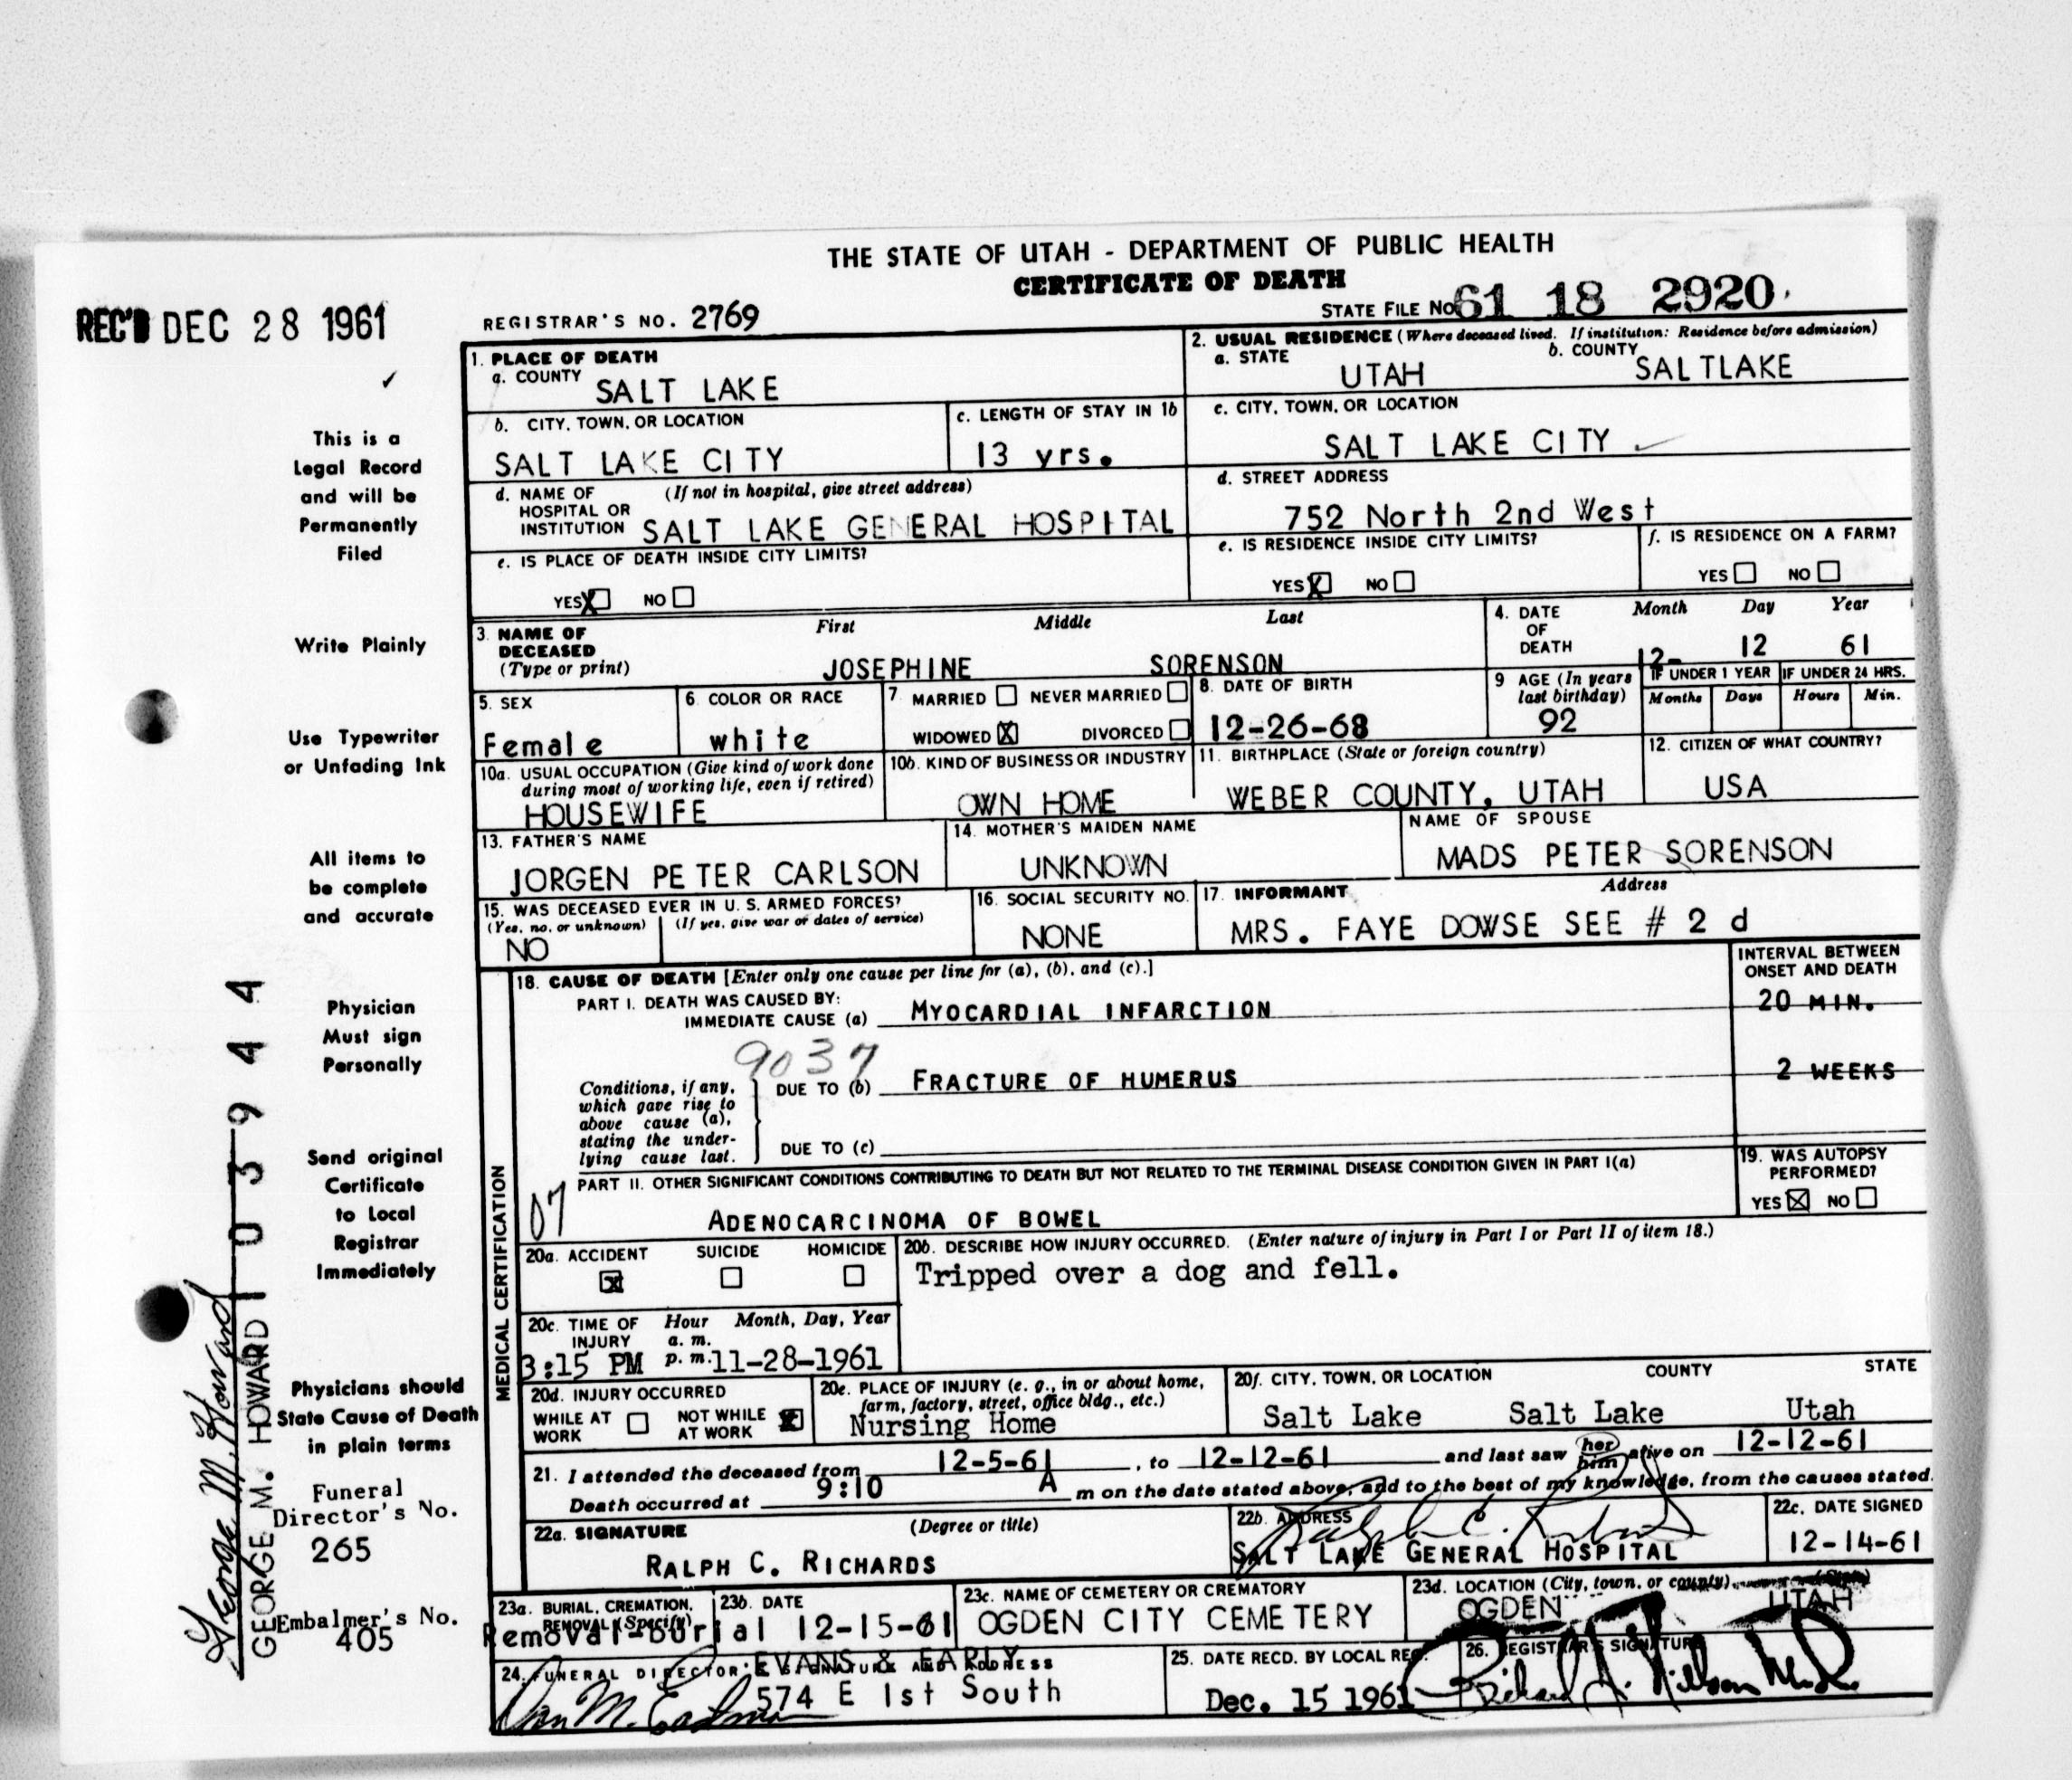 THE STATE OF UTAH - DEPARTMENT OF PUBLIC HEALTH
CERTIFICATE OF DEATH
REC'D DEC 28 1961
REGISTRAR'S NO. 2769
STATE FILE NO. 61 18 2920
1. PLACE OF DEATH
a. COUNTY SALT LAKE
2. USUAL RESIDENCE (Where deceased lived. If institution: Residence before admission)
a. STATE UTAH b. COUNTY SALTLAKE
b. CITY, TOWN, OR LOCATION SALT LAKE CITY
c. LENGTH OF STAY IN 1b 13 yrs.
c. CITY, TOWN, OR LOCATION SALT LAKE CITY
d. NAME OF HOSPITAL OR INSTITUTION (If not in hospital, give street address) SALT LAKE GENERAL HOSPITAL
d. STREET ADDRESS 752 North 2nd West
e. IS PLACE OF DEATH INSIDE CITY LIMITS?
YES X NO
e. IS RESIDENCE INSIDE CITY LIMITS?
YES X NO
f. IS RESIDENCE ON A FARM?
YES NO
3. NAME OF DECEASED (Type or print)
First Middle Last
JOSEPHINE SORENSON
4. DATE OF DEATH Month Day Year
12- 12 61
5. SEX Female
6 COLOR OR RACE white
7 MARRIED NEVER MARRIED
WIDOWED X DIVORCED
8. DATE OF BIRTH 12-26-68
9 AGE (In years last birthday) 92
IF UNDER 1 YEAR Months Days
IF UNDER 24 HRS. Hours Min.
10a. USUAL OCCUPATION (Give kind of work done during most of working life, even if retired)
HOUSEWIFE
10b. KIND OF BUSINESS OR INDUSTRY
OWN HOME
11. BIRTHPLACE (State or foreign country)
WEBER COUNTY, UTAH
12. CITIZEN OF WHAT COUNTRY?
USA
13. FATHER'S NAME
JORGEN PETER CARLSON
14. MOTHER'S MAIDEN NAME
UNKNOWN
NAME OF SPOUSE
MADS PETER SORENSON
15. WAS DECEASED EVER IN U. S. ARMED FORCES?
(Yes, no, or unknown) (If yes, give war or dates of service)
NO
16. SOCIAL SECURITY NO.
NONE
17. INFORMANT Address
MRS. FAYE DOWSE SEE # 2 d
18. CAUSE OF DEATH [Enter only one cause per line for (a), (b), and (c).]
INTERVAL BETWEEN ONSET AND DEATH
PART I. DEATH WAS CAUSED BY:
IMMEDIATE CAUSE (a) MYOCARDIAL INFARCTION 20 MIN.
9037
Conditions, if any, which gave rise to above cause (a), stating the underlying cause last.
DUE TO (b) FRACTURE OF HUMERUS 2 WEEKS
DUE TO (c)
PART II. OTHER SIGNIFICANT CONDITIONS CONTRIBUTING TO DEATH BUT NOT RELATED TO THE TERMINAL DISEASE CONDITION GIVEN IN PART I(a)
07
ADENOCARCINOMA OF BOWEL
19. WAS AUTOPSY PERFORMED?
YES X NO
MEDICAL CERTIFICATION
20a. ACCIDENT SUICIDE HOMICIDE
X
20b. DESCRIBE HOW INJURY OCCURRED. (Enter nature of injury in Part I or Part II of item 18.)
Tripped over a dog and fell.
20c. TIME OF INJURY Hour Month, Day, Year
a. m.
p. m.
3:15 PM 11-28-1961
20d. INJURY OCCURRED
WHILE AT WORK NOT WHILE AT WORK X
20e. PLACE OF INJURY (e. g., in or about home, farm, factory, street, office bldg., etc.)
Nursing Home
20f. CITY, TOWN, OR LOCATION COUNTY STATE
Salt Lake Salt Lake Utah
21. I attended the deceased from 12-5-61, to 12-12-61 and last saw her him alive on 12-12-61
Death occurred at 9:10 A m on the date stated above, and to the best of my knowledge, from the causes stated.
22a. SIGNATURE (Degree or title)
RALPH C. RICHARDS
22b. ADDRESS
Ralph C. Richards
SALT LAKE GENERAL HOSPITAL
22c. DATE SIGNED
12-14-61
23a. BURIAL, CREMATION, REMOVAL (Specify)
Removal-burial
23b. DATE
12-15-61
23c. NAME OF CEMETERY OR CREMATORY
OGDEN CITY CEMETERY
23d. LOCATION (City, town, or county) (State)
OGDEN UTAH
24. FUNERAL DIRECTOR'S SIGNATURE AND ADDRESS
EVANS & EARLY
574 E 1st South
25. DATE RECD. BY LOCAL REG.
Dec. 15 1961
26. REGISTRAR'S SIGNATURE
This is a
Legal Record
and will be
Permanently
Filed
Write Plainly
Use Typewriter
or Unfading Ink
All items to
be complete
and accurate
Physician
Must sign
Personally
Send original
Certificate
to Local
Registrar
Immediately
Physicians should
State Cause of Death
in plain terms
Funeral
Director's No.
265
Embalmer's No.
405
George M. Howard
GEORGE M. HOWARD 103944